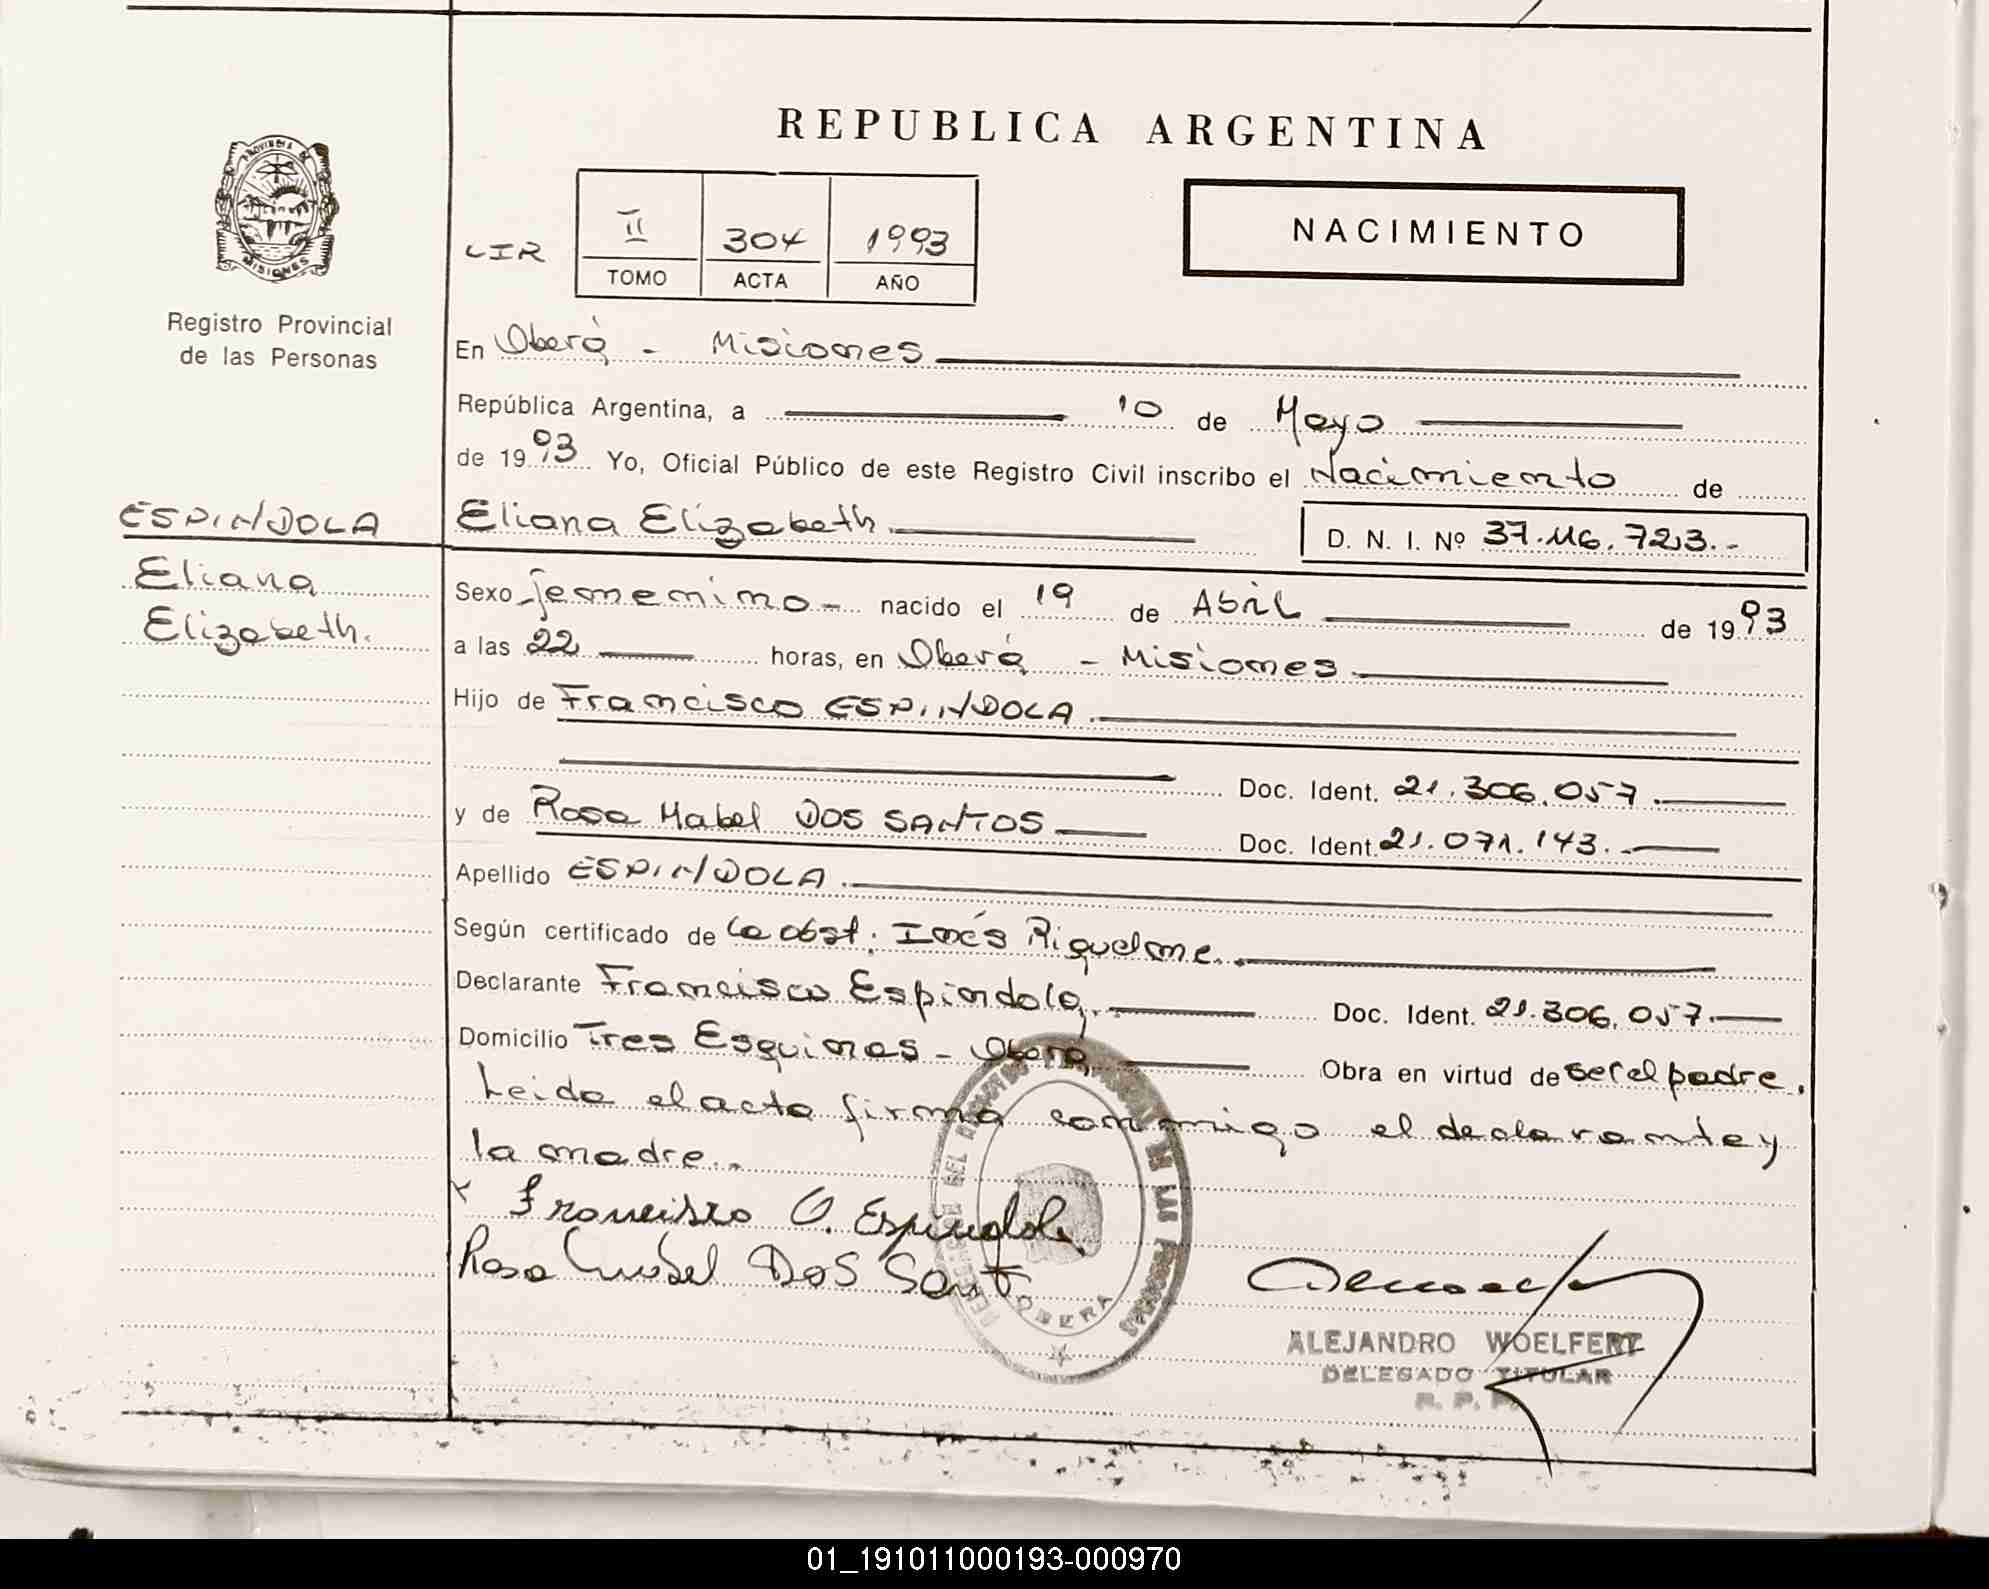 REPUBLICA ARGENTINA
PROVINCIA DE
MISIONES
Registro Provincial
de las Personas
LIR
II 304 1993
TOMO ACTA AÑO
NACIMIENTO
En Oberá - Misiones
República Argentina, a 10 de Mayo
de 1993 Yo, Oficial Público de este Registro Civil inscribo el Nacimiento de
ESPINDOLA
Eliana
Elizabeth.
Eliana Elizabeth.
D. N. I. Nº 37.116.723.-
Sexo femenino - nacido el 19 de Abril de 1993
a las 22 horas, en Oberá - Misiones
Hijo de Francisco ESPINDOLA.
Doc. Ident. 21.306.057.
y de Rosa Mabel DOS SANTOS Doc. Ident. 21.071.143.-
Apellido ESPINDOLA.
Según certificado de la obst. Inés Riquelme.
Declarante Francisco Espindola, Doc. Ident. 21.306.057.
Domicilio Tres Esquinas - Oberá, Obra en virtud de ser el padre.
Leida el acta firma conmigo el declarante y
la madre..
x Francisco O. Espindola
Rosa Mabel Dos Sant
OBERA
ALEJANDRO WOELFERT
DELEGADO TITULAR
R. P. P.
01_191011000193-000970